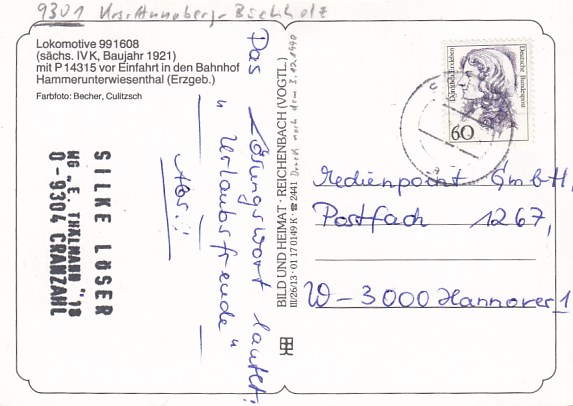 9301 Krs. Annaberg-Buchholz
Lokomotive 991608
(sächs. IVK, Baujahr 1921)
mit P 14315 vor Einfahrt in den Bahnhof
Hammerunterwiesenthal (Erzgeb.)
Farbfoto: Becher, Culitzsch
Das Lösungswort lautet:
"Urlaubsfreude"
Abs.:
SILKE LÖSER
WG „E. THLMANN" 18
O-9304 CRANZAHL
BILD UND HEIMAT · REICHENBACH (VOGTL.)
III/26/13 · 01 17 0149 K ☎ 2441
Druck nach dem
Dorothea Erxleben
Deutsche Bundespost
60
Medienpoint GmbH,
Postfach 1267,
W-3000 Hannover 1